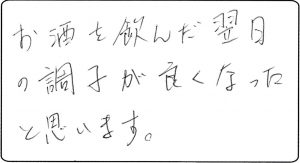 お酒を飲んだ翌日
の調子が良くなった
と思います。